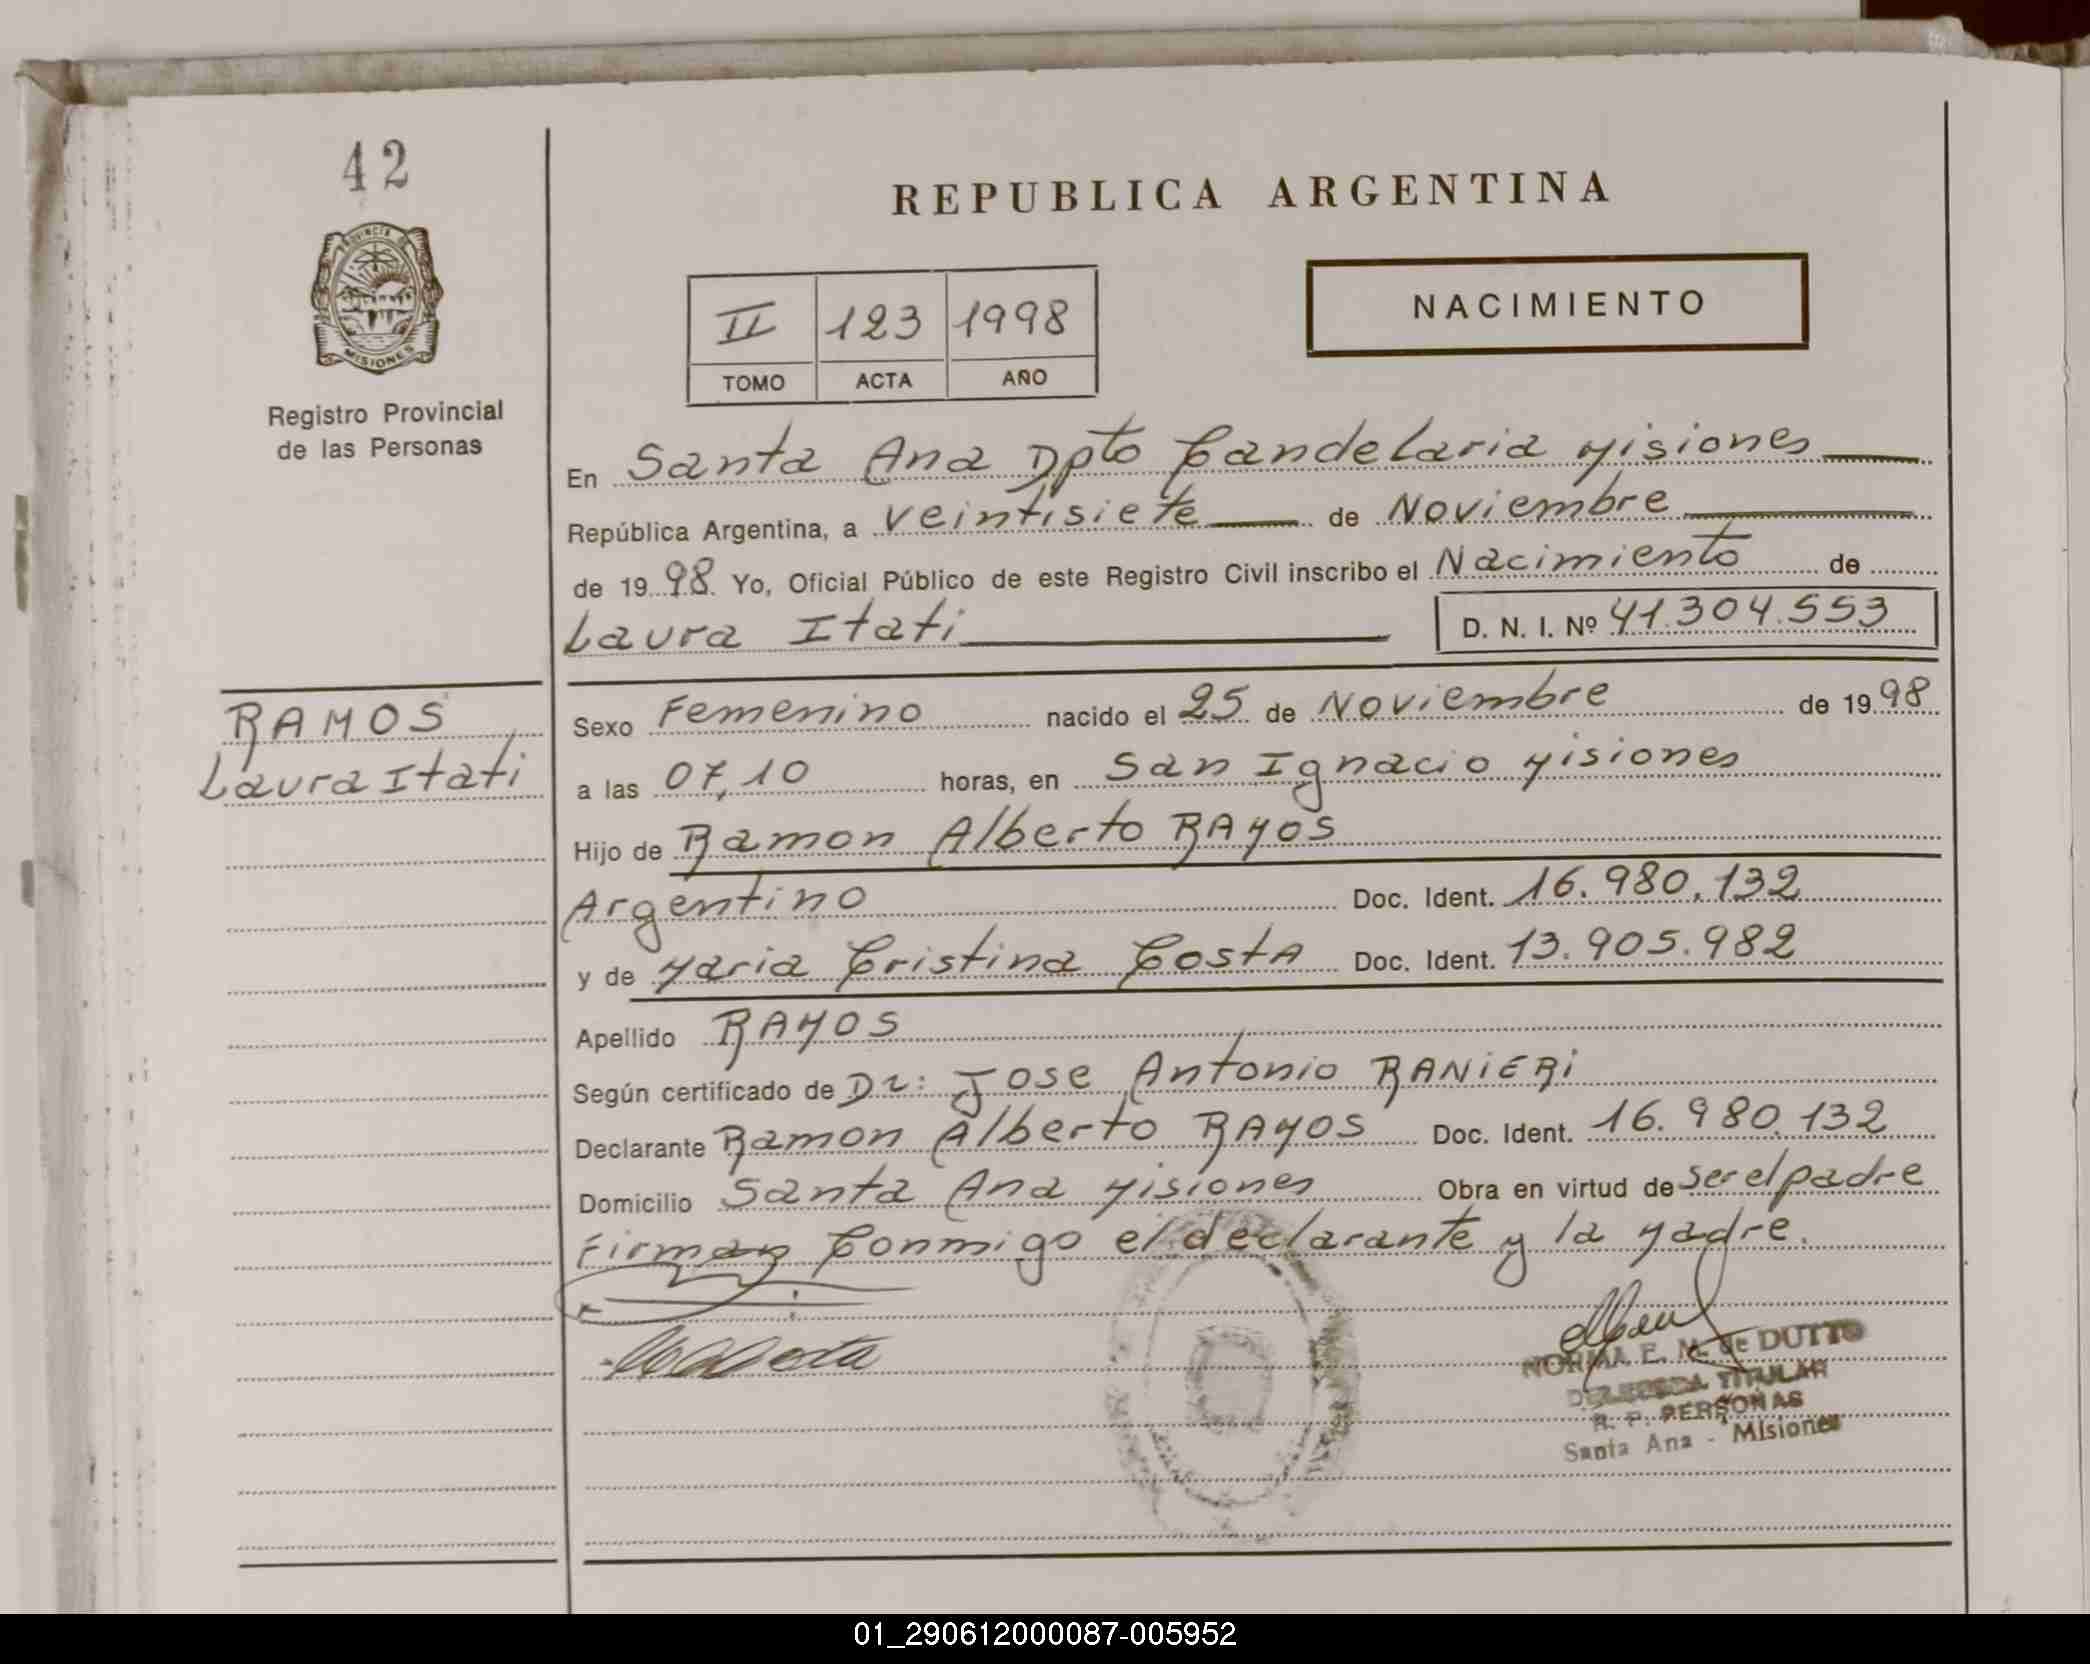 42
PROVINCIA DE
MISIONES
Registro Provincial
de las Personas
REPUBLICA ARGENTINA
II 123 1998
TOMO ACTA AÑO
NACIMIENTO
En Santa Ana Dpto Candelaria Misiones
República Argentina, a veintisiete de Noviembre
de 1998. Yo, Oficial Público de este Registro Civil inscribo el Nacimiento de
Laura Itati D. N. I. Nº 41.304.553
RAMOS
Laura Itati
Sexo Femenino nacido el 25 de Noviembre de 1998
a las 07,10 horas, en San Ignacio Misiones
Hijo de Ramon Alberto RAMOS
Argentino Doc. Ident. 16.980.132
y de Maria Cristina Costa Doc. Ident. 13.905.982
Apellido RAMOS
Según certificado de Dr: Jose Antonio RANIERI
Declarante Ramon Alberto RAMOS Doc. Ident. 16.980.132
Domicilio Santa Ana Misiones Obra en virtud de ser el padre
Firman Conmigo el declarante y la Madre.
NORMA E. M. de DUTTO
DELEGADA TITULAR
R. P. PERSONAS
Santa Ana - Misiones
01_290612000087-005952